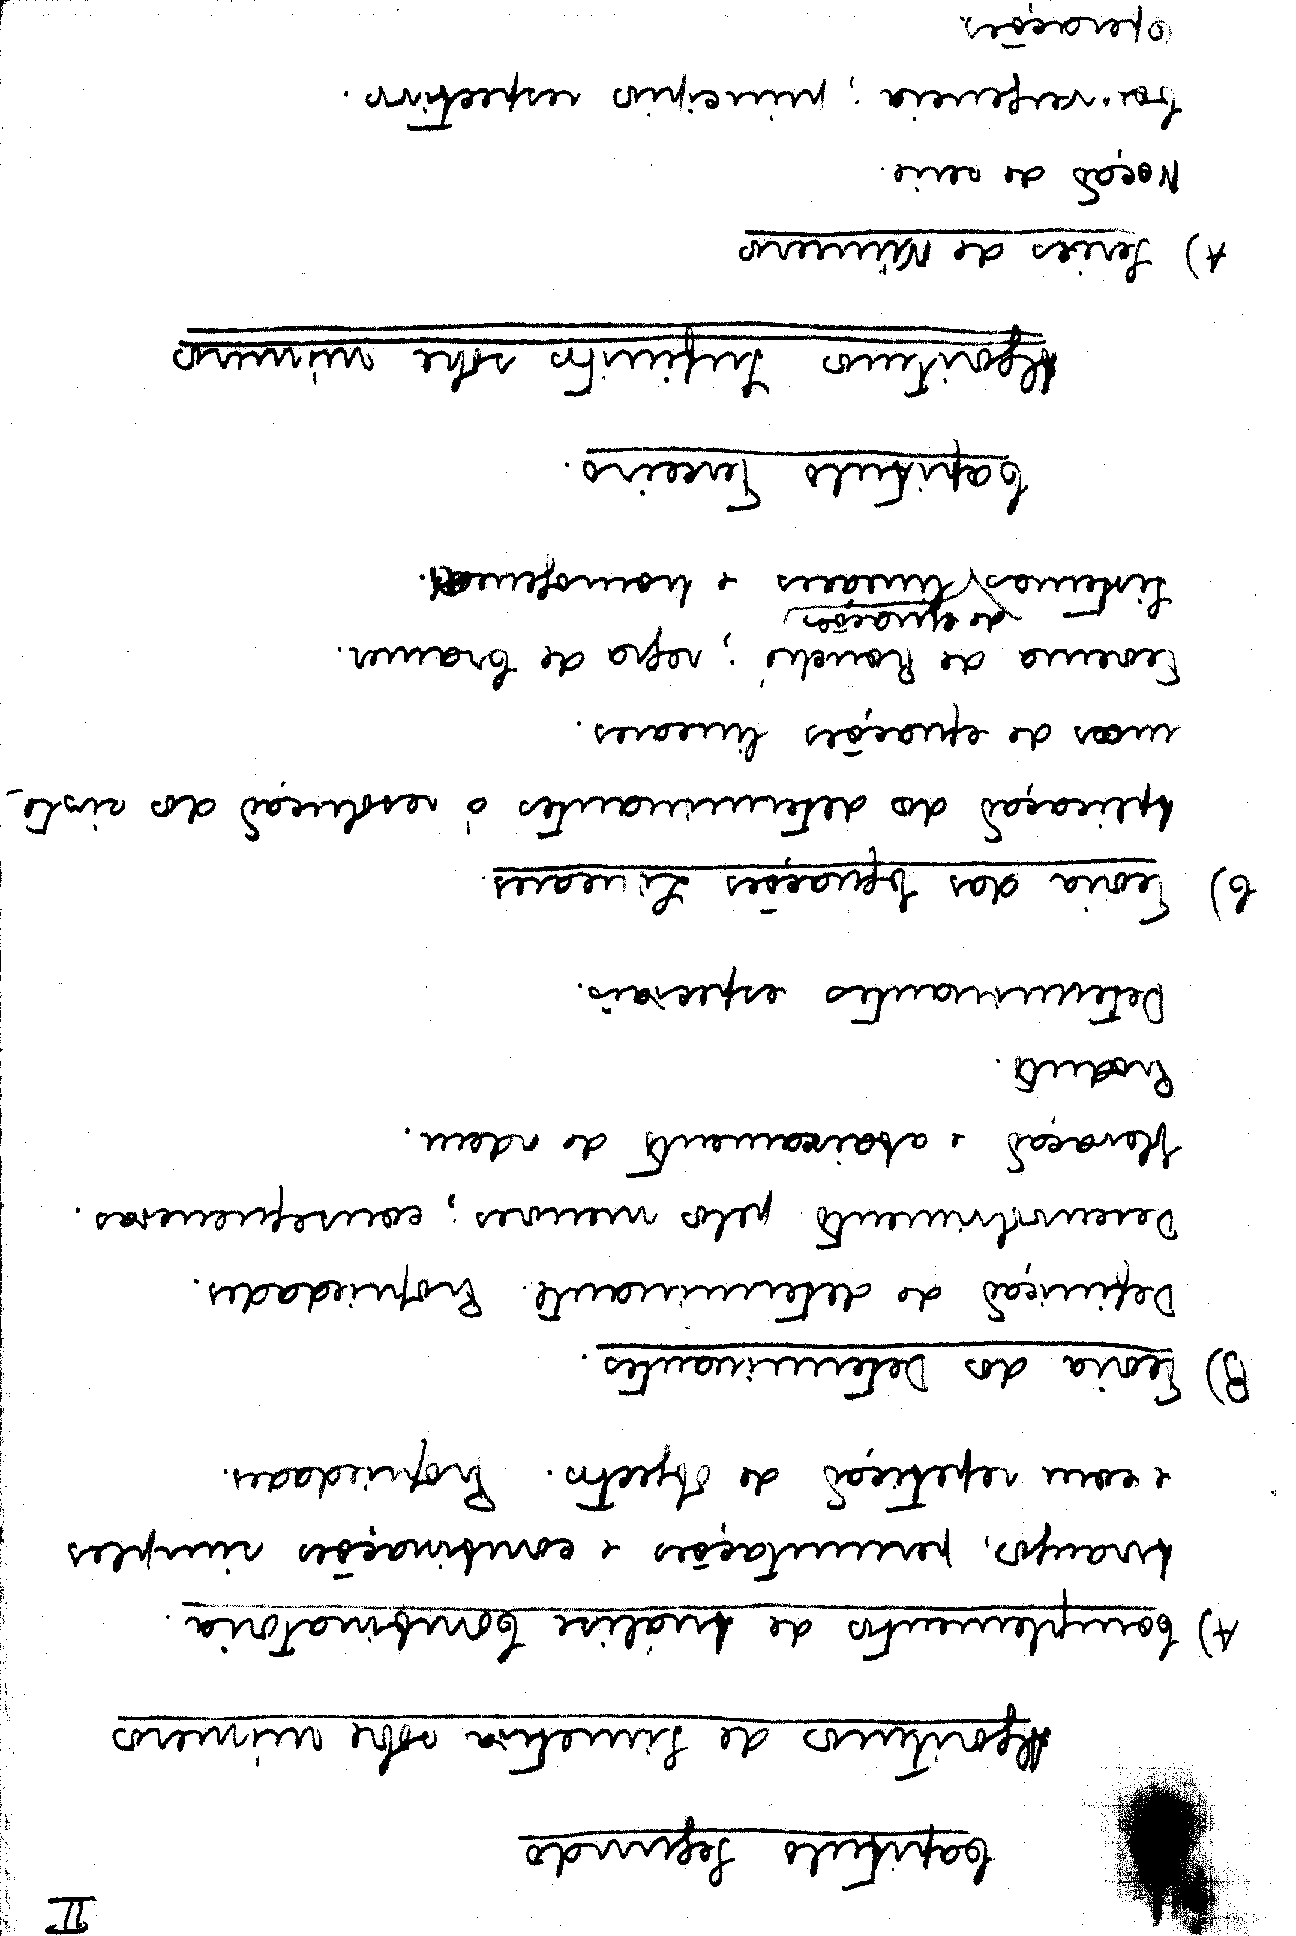 II
Capitulo Segundo
Algoritmos de Simetria sobre números
A) Complementos de Análise Combinatória.
Arranjos, permutações e combinações simples
e com repetição de Objectos. Propriedades.
B) Teoria dos Determinantes.
Definição de determinante. Propriedades.
Desenvolvimento pelos menores; consequencias.
Elevação e abaixamento de ordem.
Produto.
Determinantes especiais.
C) Teoria das Equações Lineares.
Aplicação dos determinantes á resolução dos siste-
mas de equações lineares.
Teorema de Rouché; regra de Cramer.
de equações
Sistemas lineares e homogeneos.
Capitulo Terceiro.
Algoritmos Infinitos sobre números
A) Series de Números
Noção de serie.
Convergencia; principios respectivos.
Operações.